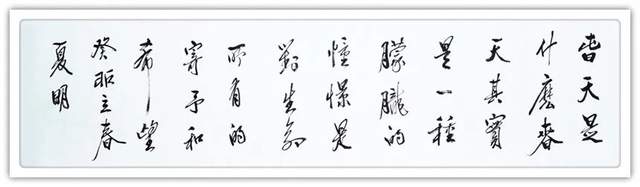 春天是
什麽春
天其實
是一種
朦朧的
憧憬是
對生命
所有的
寄予和
希望
癸卯立春
夏明